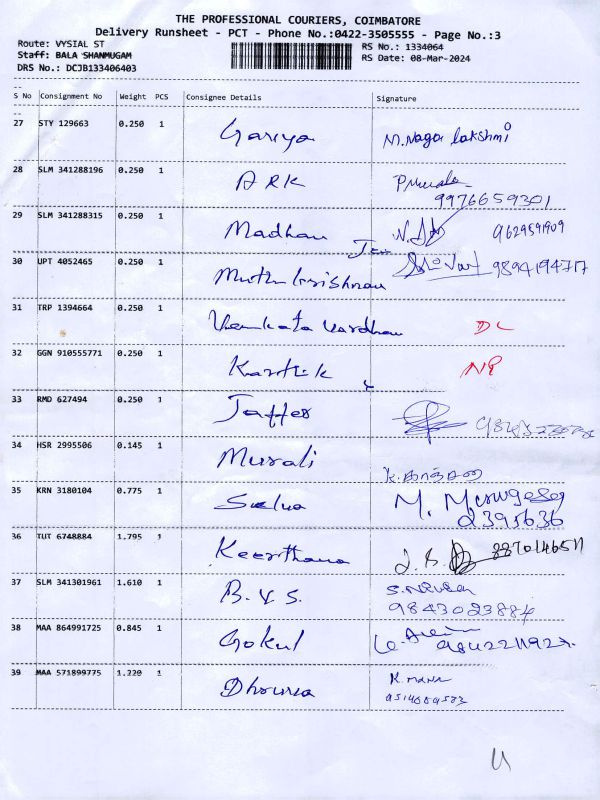 THE PROFESSIONAL COURIERS, COIMBATORE
Delivery Runsheet - PCT - Phone No.:0422-3505555 - Page No.:3
Route: VYSIAL ST RS No.: 1334064
Staff: BALA SHANMUGAM RS Date: 08-Mar-2024
DRS No.: DCJB133406403
S No Consignment No Weight PCS Consignee Details Signature
27 STY 129663 0.250 1 Gariya M.Naga lakshmi
28 SLM 341288196 0.250 1 ARK
9976659301
29 SLM 341288315 0.250 1 Madhan 9629591909
30 UPT 4052465 0.250 1 Muthu krishnan 9894194717
31 TRP 1394664 0.250 1 Venkata Vardhan DL
32 GGN 910555771 0.250 1 Karthik NP
33 RMD 627494 0.250 1 Jaffer
34 HSR 2995506 0.145 1 Murali
35 KRN 3180104 0.775 1 Selva M. Murugesan
2395636
36 TUT 6748884 1.795 1 Keerthana
37 SLM 341301961 1.610 1 B.V.S.
9843023884
38 MAA 864991725 0.845 1 Gokul
39 MAA 571899775 1.220 1 K. mana